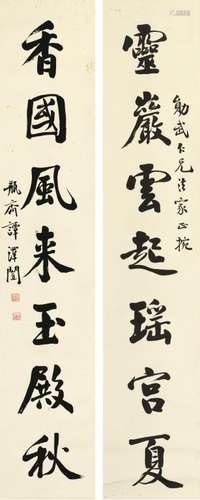 靈巖雲起瑶宮夏
武仁兄法家正
香國風来玉殿秋
瓶齋譚澤闓